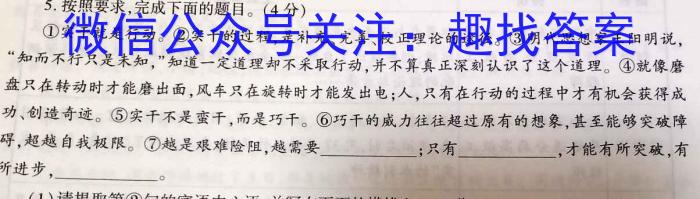 5. 按照要求,完成下面的题目。(4 分)
微信公众号关注：趣找答案
“知而不行只是未知,”知道一定道理却不采取行动,并不算真正深刻认识了这个道理。④就像磨
盘只在转动时才能磨出面,风车只在旋转时才能发出电;人,只有在行动的过程中才有机会获得成
功、创造奇迹。⑤实干不是蛮干,而是巧干。⑥巧干的威力往往超过原有的想象,甚至能够突破障
碍,超越自我极限。⑦越是艰难险阻,越需要__________;只有__________,才能有所突破,有
所进步,__________。